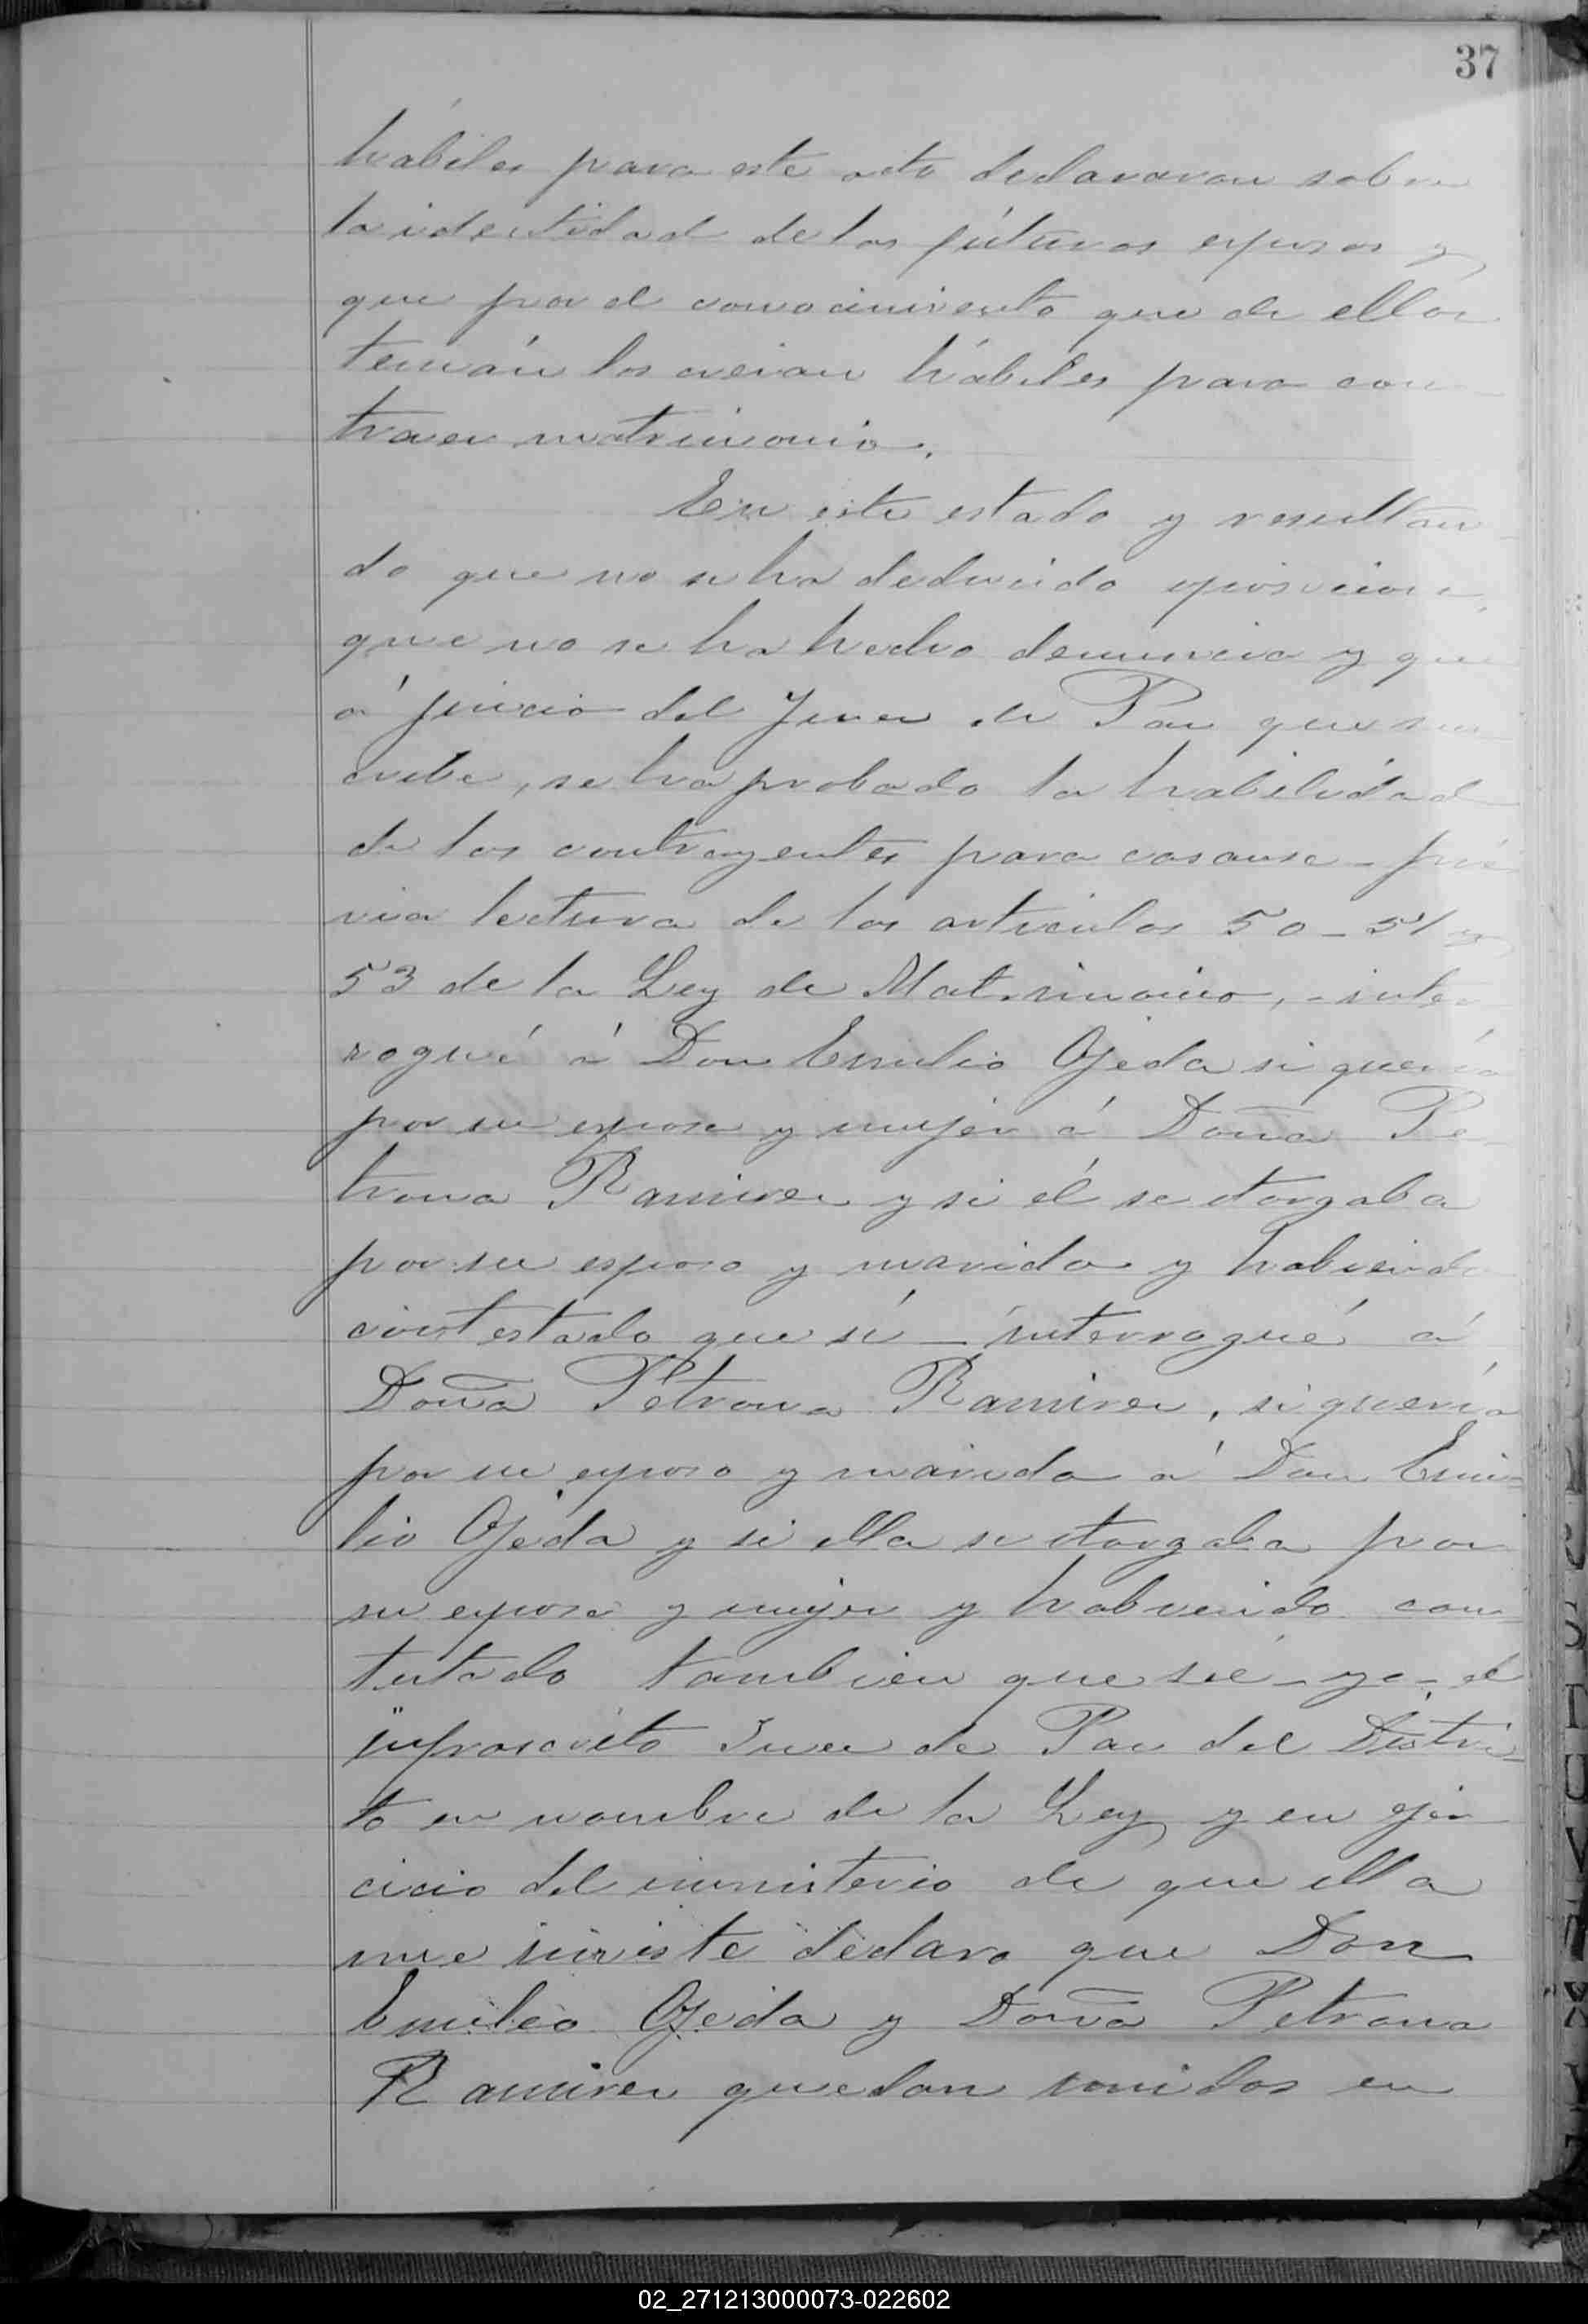 37
hábiles para este acto declararon sobre
la identidad de los fúturos esposos y
que por el conocimiento que de ellos
tenían los creian hábiles para con
traer matrimonio.
En este estado y resultan
do que no se ha deducido oposicion,
que no se ha hecho denuncia y que
á juicio del Juez de Paz que sus
cribe, se ha probado la habilidad
de los contrayentes para casarse - pré
via lectura de los artículos 50 - 51 y
53 de la Ley de Matrimonio, - inter
rogué á Don Emilio Ojeda si quería
por su esposa y mujer á Doña Pe
trona Ramirez y si él se otorgaba
por su esposo y marido y habiendo
contestado que sí - interrogué á
Doña Petrona Ramirez, si quería
por su esposo y marido á Don Emi-
lio Ojeda y si ella se otorgaba por
su esposa y mujer y habiendo con
testado tambien que sí - yo - el
infrascrito Juez de Paz del Distri-
to en nombre de la Ley y en ejer
cicio del ministerio de que ella
me inviste declaro que Don
Emilio Ojeda y Doña Petrona
Ramirez quedan unidos en
02_271213000073-022602